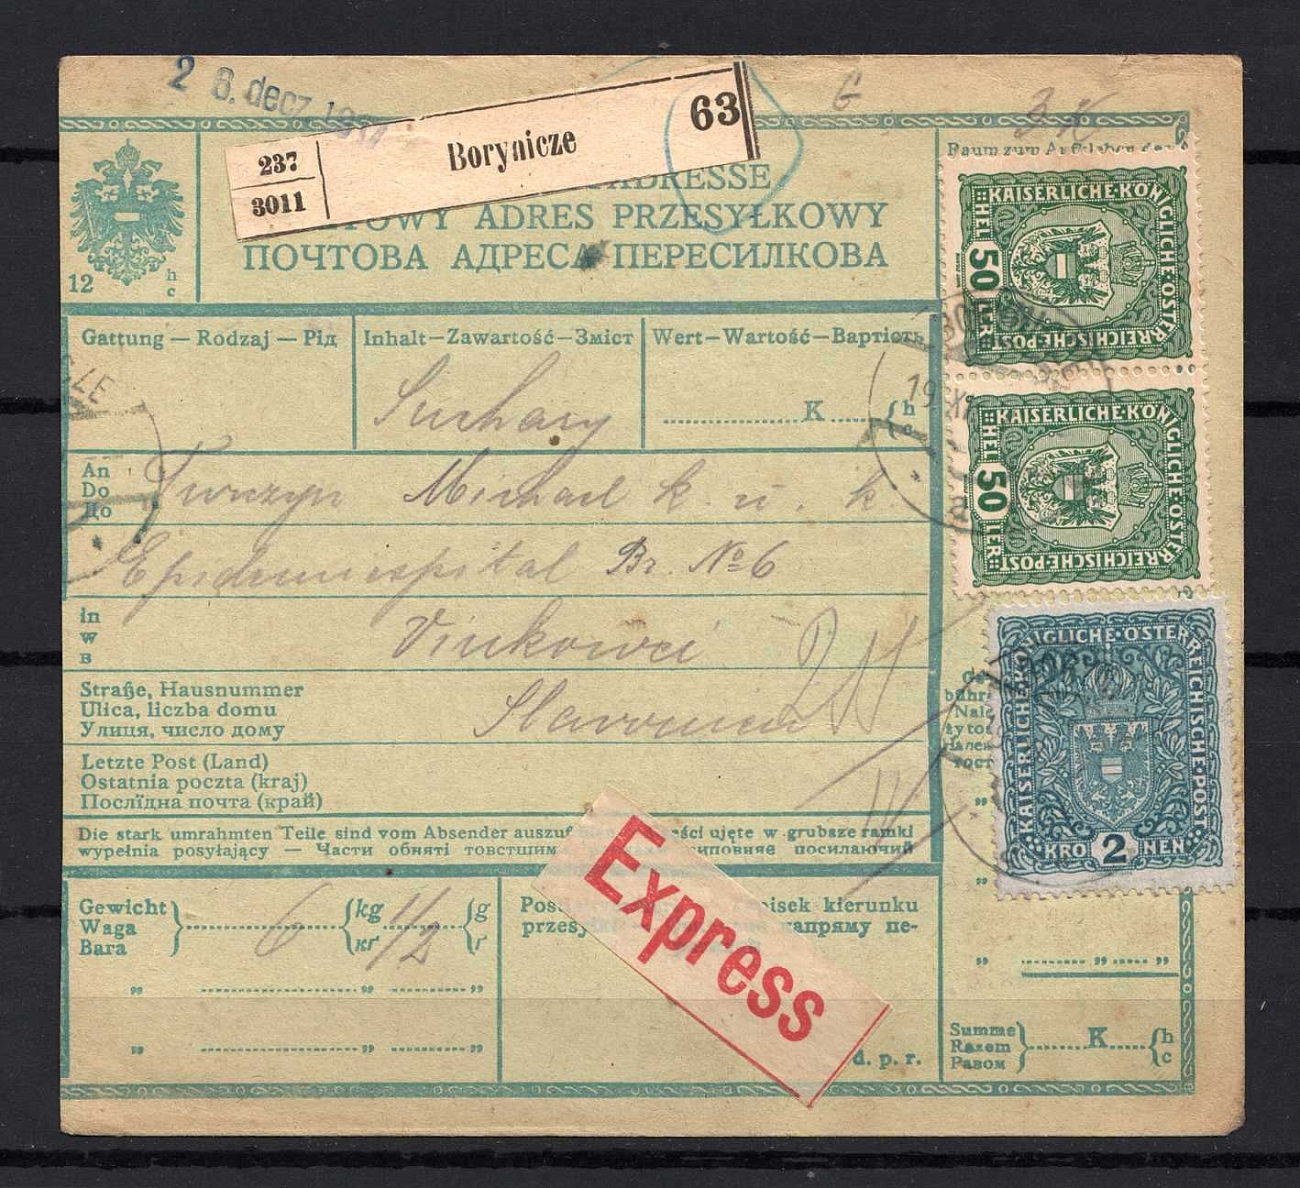 2 8. decz. 1917
237
3011
Borynicze
63
G
3 K
Raum zum Aufkleben der
ADRESSE
TOWY ADRES PRZESYŁKOWY
ПОЧТОВА АДРЕСА ПЕРЕСИЛКОВА
12
h
c
Gattung — Rodzaj — Рід
Inhalt — Zawartość — Зміст
Wert — Wartość — Вартість
Suchary
K
h
An
Do
До
Turczyn Michael k. u. k
Epidemiespital Br. № 6
in
w
в
Vinkovci
Straße, Hausnummer
Ulica, liczba domu
Улиця, число дому
Slavonien
Letzte Post (Land)
Ostatnia poczta (kraj)
Послїдна почта (край)
Die stark umrahmten Teile sind vom Absender auszuf
ści ujęte w grubsze ramki
wypełnia posyłający — Части обняті товстшим
виповняє посилаючий
Gewicht
Waga
Вага
6
kg
кґ
1/2
g
ґ
Post
pisek kierunku
przesy
напряму пе-
Express
d. p. r.
KAISERLICHE·KÖNIGLICHE·ÖSTERREICHISCHE·POST
50 HELLER
KAISERLICHE·KÖNIGLICHE·ÖSTERREICHISCHE·POST
50 HELLER
KAISERLICHE·KÖNIGLICHE·ÖSTERREICHISCHE·POST
KRO 2 NEN
Summe
Razem
Разом
K
h
c